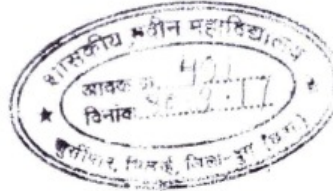 शासकीय नवीन महाविद्यालय
आवक क्र. 421
दिनांक
खुर्सीपार, भिलाई, जिला-दुर्ग (छ.ग.)